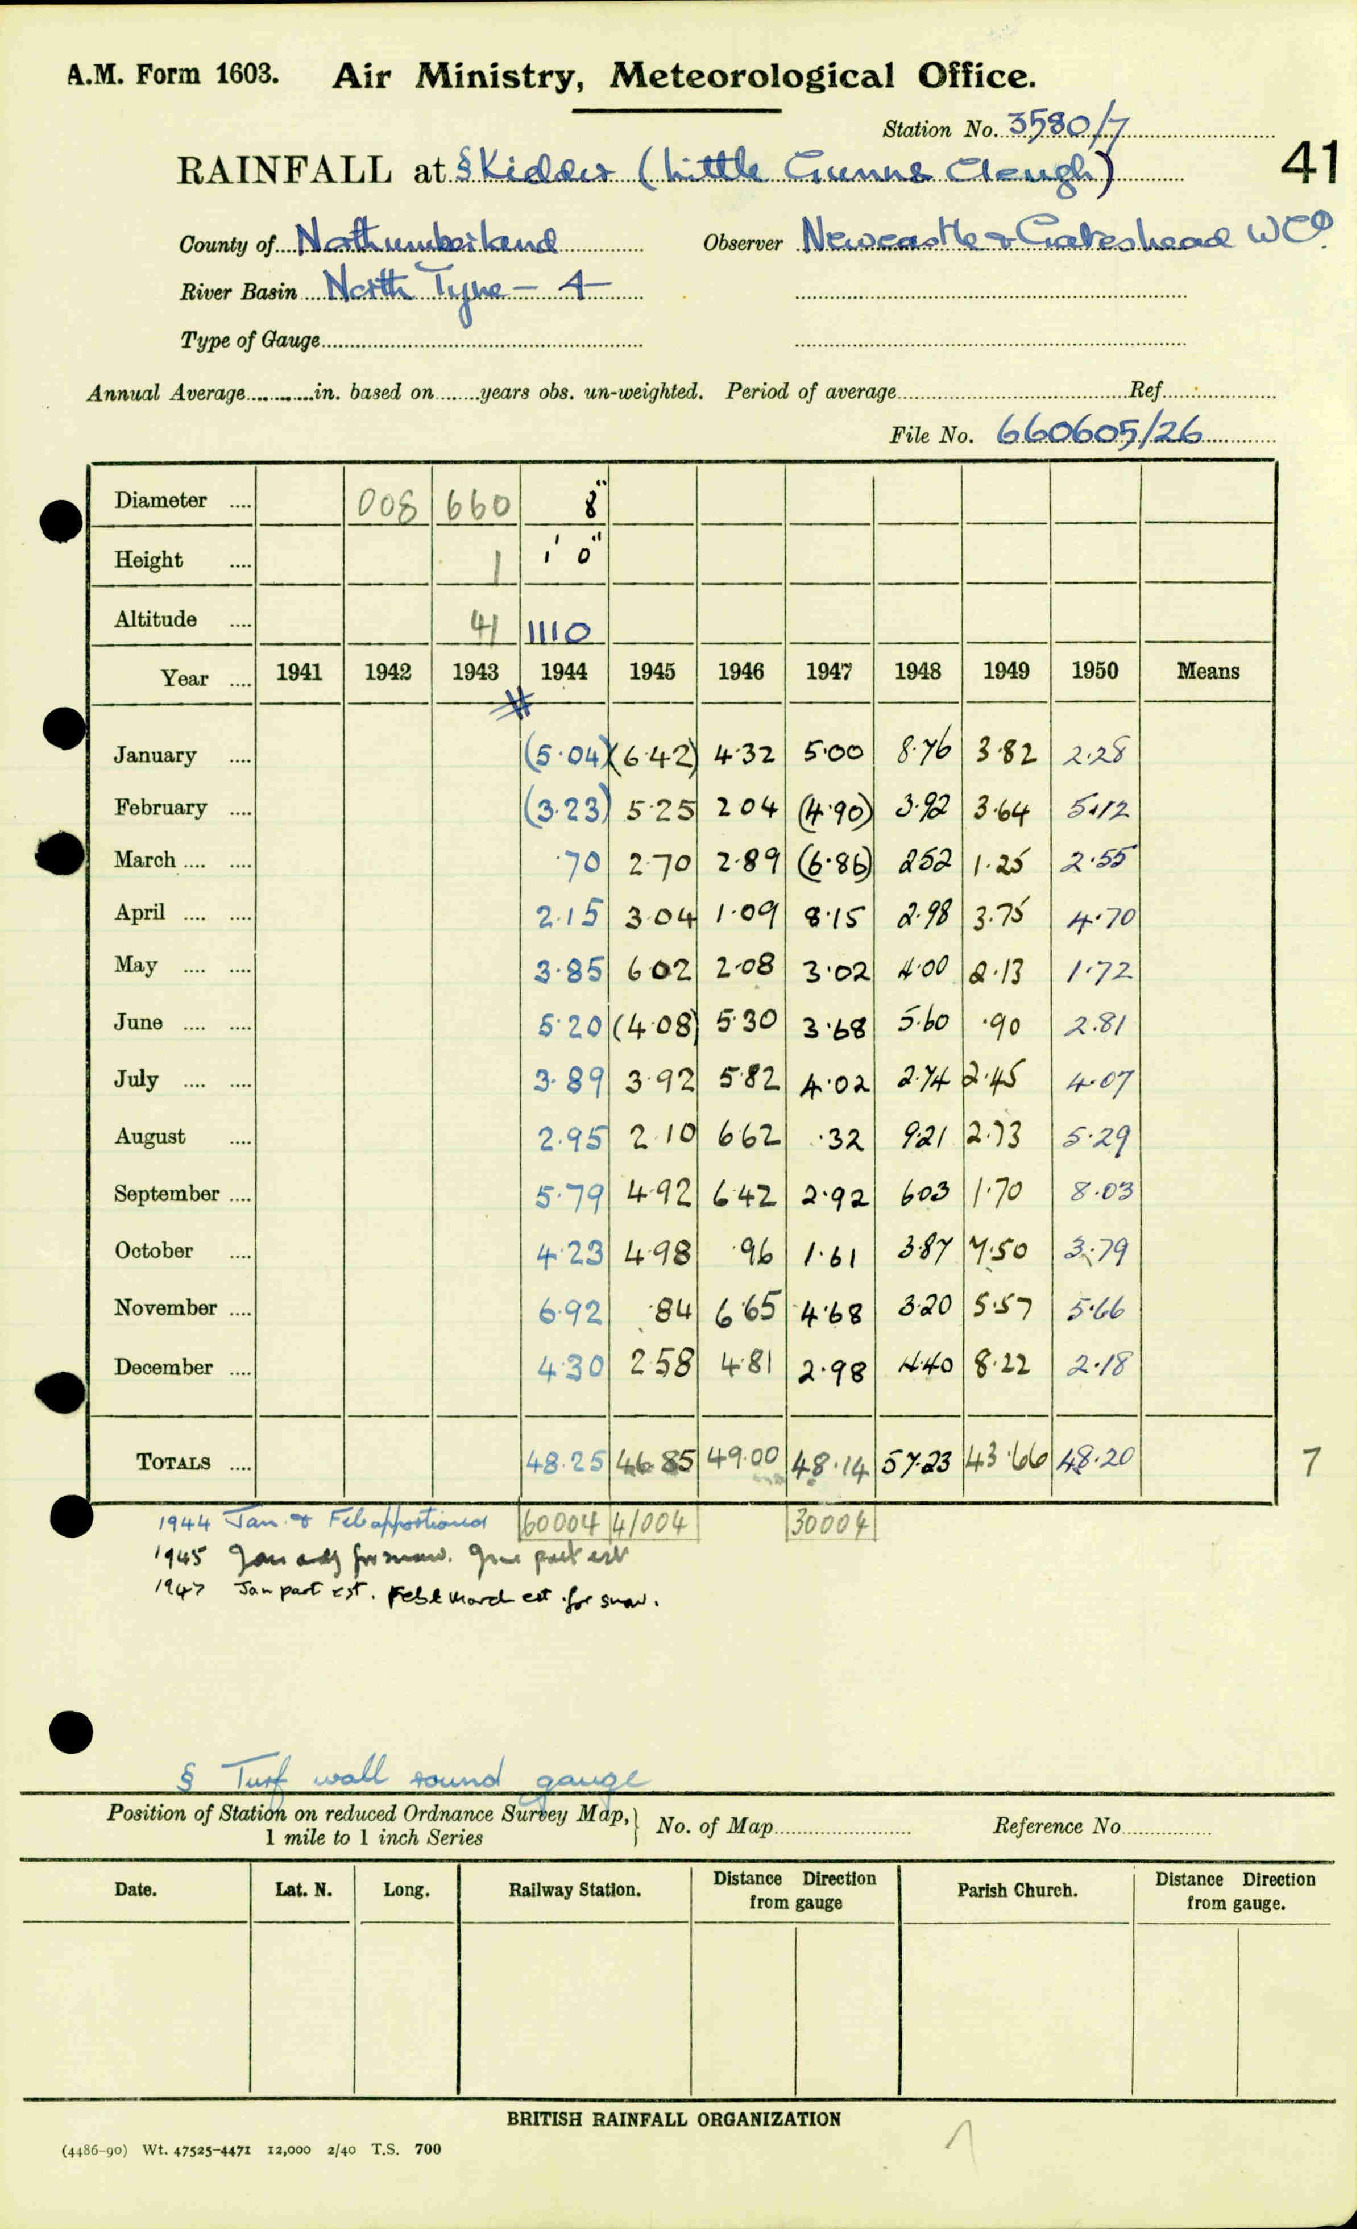 A.M. Form 1603. Air Ministry, Meteorological Office.
Station No. 3580/7
RAINFALL at § Kielder (Little Gunns Cleugh) 41
County of Northumberland Observer Newcastle & Gateshead W Co.
River Basin North Tyne - 4
Type of Gauge
Annual Average in. based on years obs. un-weighted. Period of average Ref.
File No. 660605/26
Diameter 008 660 8"
Height 1 1' 0"
Altitude 41 1110
Year 1941 1942 1943 1944 1945 1946 1947 1948 1949 1950 Means
January (5.04) (6.42) 4.32 5.00 8.76 3.82 2.28
February (3.23) 5.25 2 04 (4.90) 3.92 3.64 5.12
March .70 2.70 2.89 (6.86) 2 52 1.25 2.55
April 2.15 3 04 1.09 8.15 2.98 3.75 4.70
May 3.85 6 02 2.08 3.02 4.00 2.13 1.72
June 5.20 (4.08) 5.30 3.68 5.60 .90 2.81
July 3.89 3.92 5.82 4.02 2.74 2.45 4.07
August 2.95 2.10 6 62 .32 9.21 2.73 5.29
September 5.79 4.92 6.42 2.92 6 03 1.70 8.03
October 4.23 4.98 .96 1.61 3.87 7.50 3.79
November 6.92 .84 6.65 4.68 3.20 5.57 5.66
December 4.30 2 58 4.81 2.98 4.40 8.22 2.18
TOTALS 48.25 46.85 49.00 48.14 57.23 43.66 48.20 7
1944 Jan. & Feb apportioned 60004 41004 30004
1945 Jan adj for snow. June part est
1947 Jan part est. Feb & March est for snow.
§ Turf wall round gauge
Position of Station on reduced Ordnance Survey Map, 1 mile to 1 inch Series No. of Map Reference No.
Date. Lat. N. Long. Railway Station. Distance Direction from gauge Parish Church. Distance Direction from gauge.
BRITISH RAINFALL ORGANIZATION
(4486-90) Wt. 47525-4471 12,000 2/40 T.S. 700